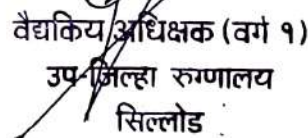 वैद्यकिय अधिक्षक (वर्ग १)
उप-जिल्हा रुग्णालय
सिल्लोड